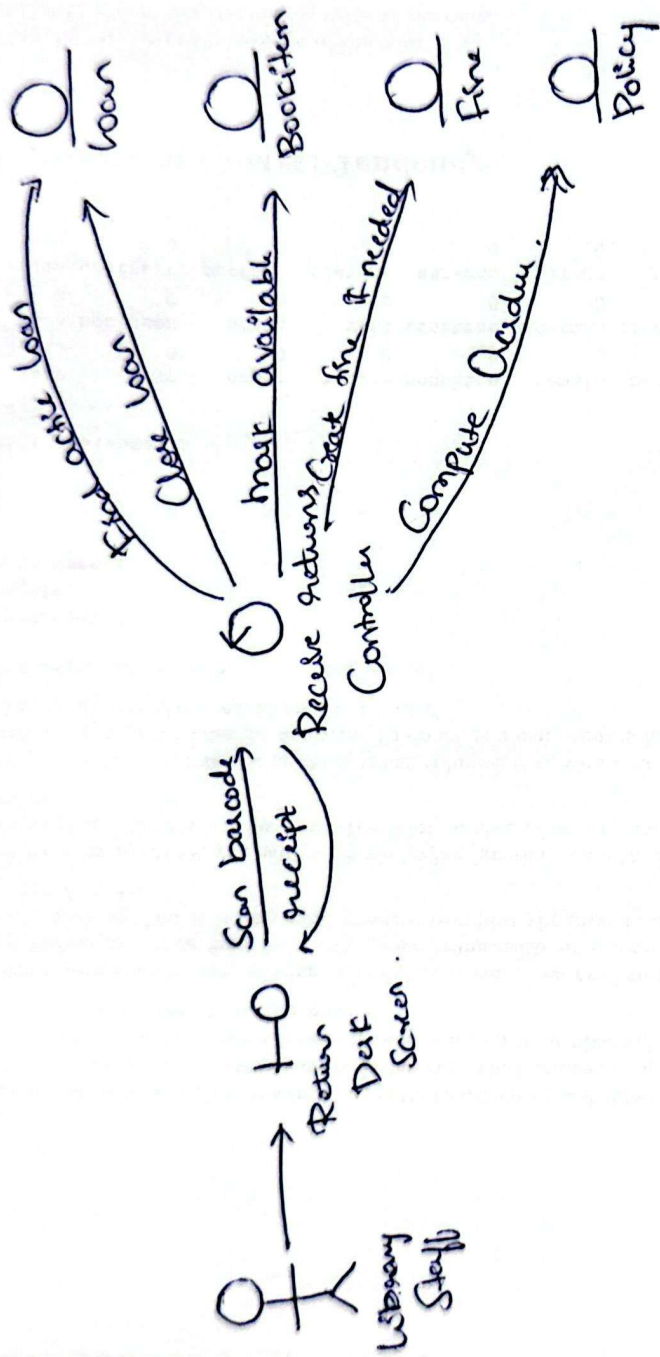 Library
Staff
Return
Desk
Screen.
Scan barcode
receipt
Receive returns
Controller
Find active loan
Close loan
mark available
Creat fine if needed
Compute
Loan
BookItem
Fine
Policy